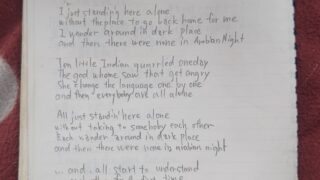 I just standing here alone
without the place to go back home for me
I wander around in dark place
and then there were none in Arabian Night
Ten little Indian quarrled oneday
The god whome saw that get angry
She change the language one by one
and then everybody are all alone
All just standin' here alone
without taking to somebody each other
Each wander around in dark place
and then there were none in arabian night
... and all start to understand